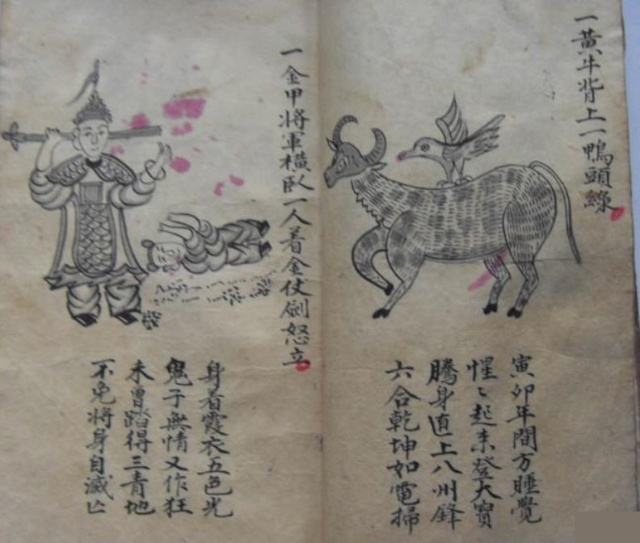 一黃牛背上一鴨頭綠
寅卯年間方睡覺
惺〻起来登大寶
騰身直上八州鋒
六合乾坤如電掃
一金甲將軍橫臥一人着金仗劍怒立
身着霞衣五色光
鬼子無情又作狂
未曾踏得三青地
不免將身自滅亾